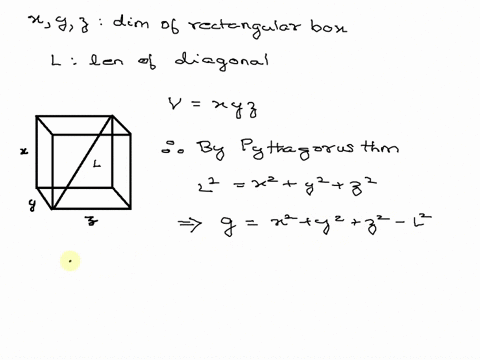 x, y, z : dim of rectangular box
L : len of diagonal
V = xyz
∴ By Pythagorus thm
L² = x² + y² + z²
⇒ g = x² + y² + z² - L²
x
L
y
z